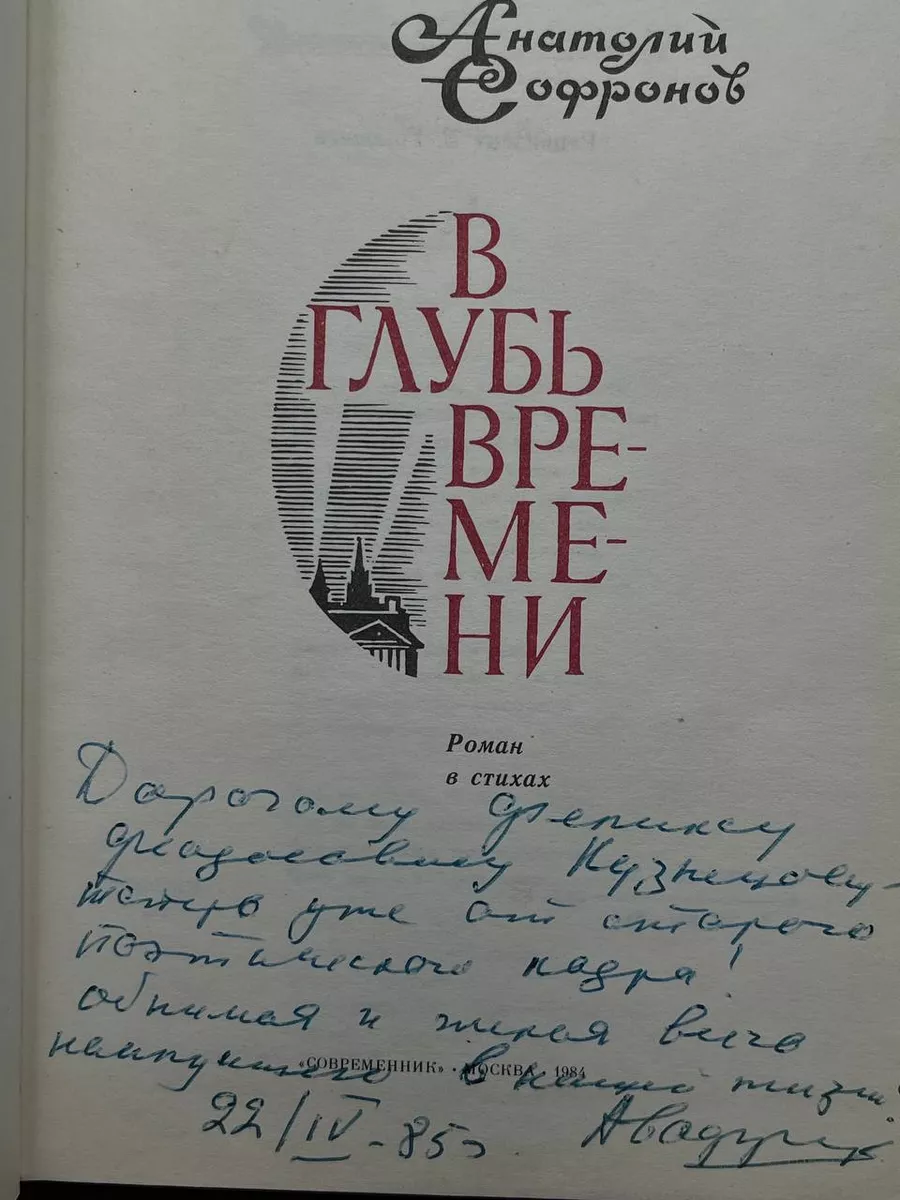 Анатолий
Софронов
В
ГЛУБЬ
ВРЕ-
МЕ-
НИ
Роман
в стихах
Дорогому Феликсу
Феодосьевичу Кузнецову -
теперь уже от старого
поэтического кадра!
обнимая и желая всего
наилучшего в нашей жизни!
«СОВРЕМЕННИК» · МОСКВА · 1984
22/IV-85г